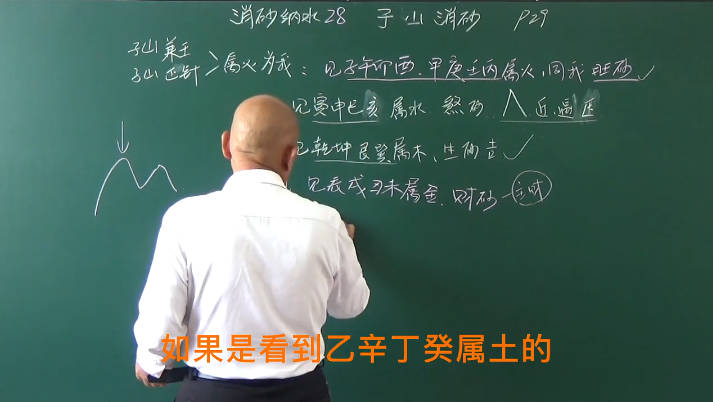 消砂纳水28 子山消砂 P29
子山兼壬
子山正针 > 属火为我：见子午卯酉、甲庚壬丙属火，同我旺砂✓
见寅申巳亥属水 煞砂
近 逼 压
乾坤艮巽属木、生砂吉✓
见辰戌丑未属金、财砂一主财
如果是看到乙辛丁癸属土的